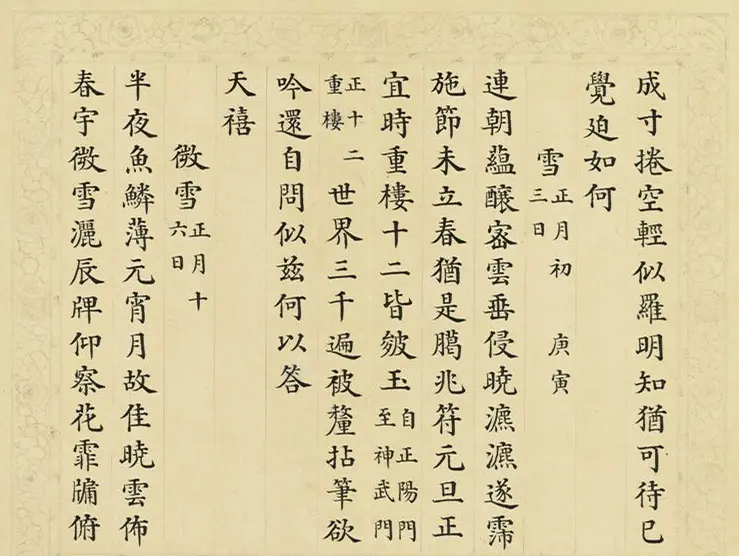 成寸捲空輕似羅明知猶可待已
覺廹如何
雪 正月初三日 庚寅
連朝蘊釀宻雲垂侵曉瀌瀌遂霈
施節未立春猶是臈兆符元旦正
宜時重樓十二皆皴玉 自正陽門至神武門
正十二重樓 世界三千遍被釐拈筆欲
吟還自問似兹何以答
天禧
微雪 正月十六日
半夜魚鱗薄元宵月故佳曉雲佈
春宇微雪灑辰牌仰察花霏牗俯